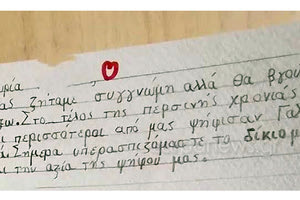 υρία
ας ζητάμε συγγνώμη αλλά θα βγου
ξω. Στο τέλος της περσινής χρονιάς
ι περισσότεροι από μας ψήφισαν Γαλ
ά. Σήμερα υπερασπιζόμαστε το δίκιο μ
ι την αξία της ψήφου μας.